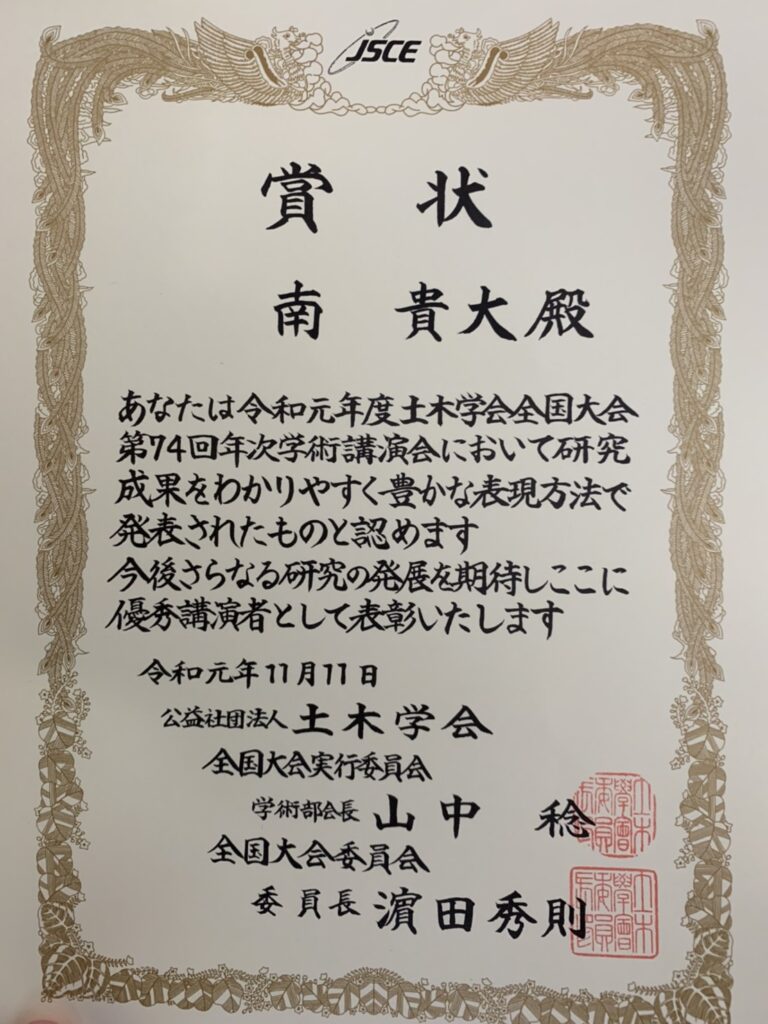 JSCE
賞 状
南 貴大殿
あなたは令和元年度土木学会全国大会
第74回年次学術講演会において研究
成果をわかりやすく豊かな表現方法で
発表されたものと認めます
今後さらなる研究の発展を期待しここに
優秀講演者として表彰いたします
令和元年11月11日
公益社団法人 土木学会
全国大会実行委員会
学術部会長 山中 稔
全国大会委員会
委員長 濵田秀則